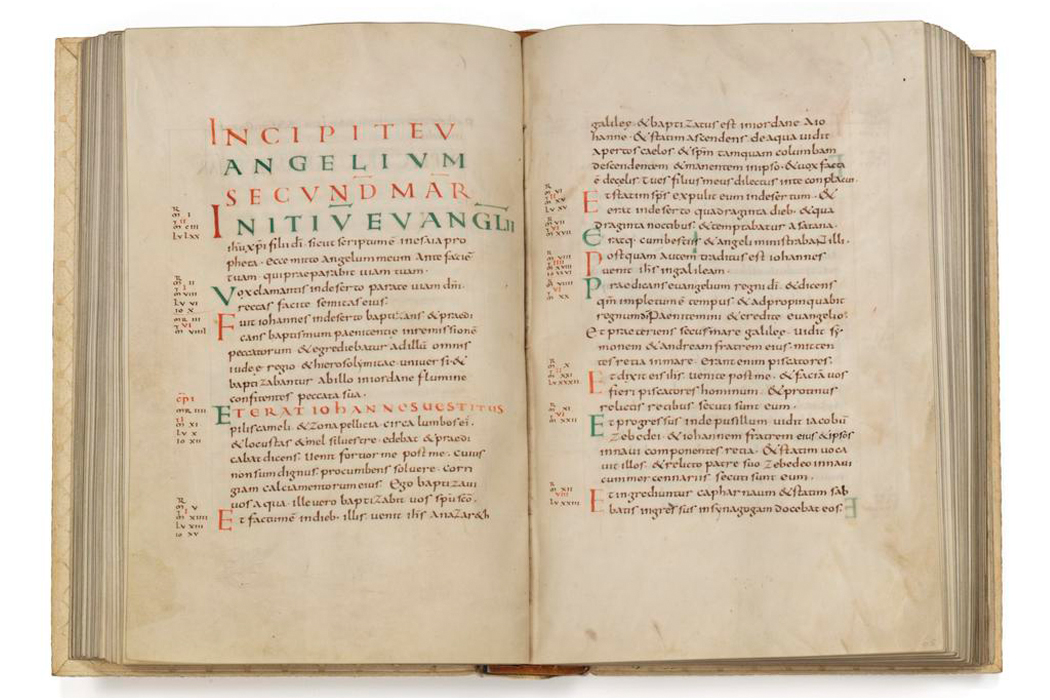 INCIPIT EV
ANGELIVM
SECVND MAR
INITIV EVANGLII
ihu xpi filii di. sicut scriptum ē in esaia pro
pheta. Ecce mitto angelum meum Ante faciē
tuam. qui praeparabit uiam tuam.
Vox clamantis in deserto parate uiam dni.
rectas facite semitas eius.
Fuit iohannes in deserto baptizans & praedi
cans baptismum paenitentie in remissionē
peccatorum & egrediebatur ad illū omnis
iudeę regio & hierosolymitae uniuersi. &
baptizabantur ab illo in iordane flumine
confitentes peccata sua.
cpi
ET ERAT IOHANNES UESTITUS
pilis cameli. & zona pellicia circa lumbos ei.
& locustas & mel siluestre edebat & praedi
cabat dicens. Uenit fortior me post me. Cuius
non sum dignus procumbens soluere corri
giam calciamentorum eius. Ego baptizaui
uos aqua. ille uero baptizabit uos spu sco.
Et factum ē in dieb. illis uenit ihs a nazar&h
galileę. & baptizatus est in iordane a io
hanne. & statim ascendens de aqua uidit
apertos caelos. & spm tamquam columbam
descendentem & manentem in ipso. & uox facta
ē de celis. tu es filius meus dilectus in te conplacui.
Et statim sps expulit eum in desertum. &
erat in deserto quadraginta dieb. & qua
draginta noctibus. & temptabatur a satana.
Eratq. cum bestiis & angeli ministrabant illi.
Postquam autem traditus est iohannes
uenit ihs in galileam.
Praedicans euangelium regni di. & dicens
qm impletum ē tempus & adpropinquabit
regnum di. Paenitemini & credite euangelio.
Et praeteriens secus mare galileę. uidit sy
monem & andream fratrem eius. mitten
tes retia in mare. Erant enim piscatores.
Et dixit eis ihs. uenite post me. & faciā uos
fieri piscatores hominum. & protinus
relictis retibus secuti sunt eum.
Et progressus inde pusillum uidit iacobū
zebedei. & iohannem fratrem eius & ipsos
in naui componentes retia. & statim uoca
uit illos. & relicto patre suo zebedeo in naui
cum mercennariis secuti sunt eum.
Et ingrediuntur capharnaum & statim sab
batis ingressus in synagogam docebat eos.